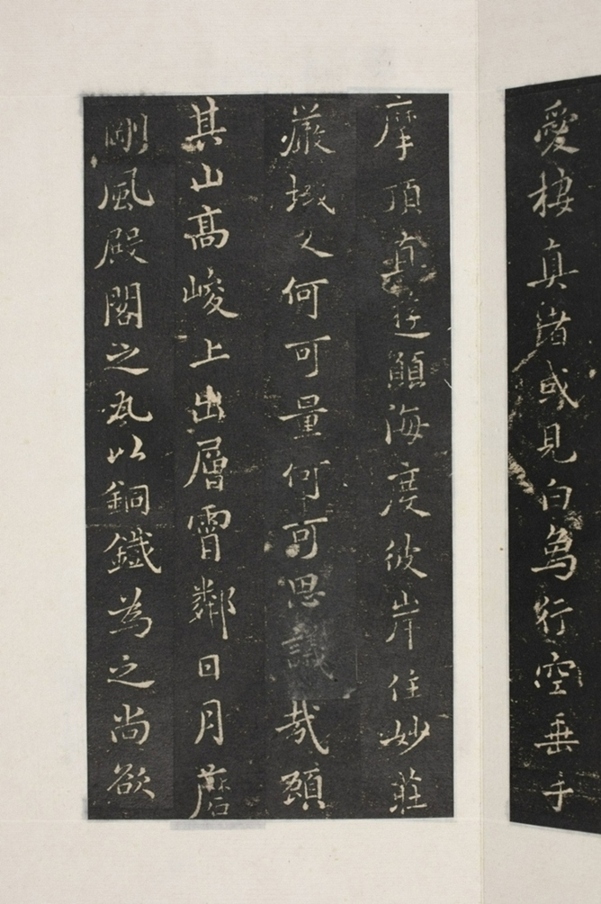 愛棲真或見白象行空垂手
摩頂真遊願海度彼岸住妙莊
嚴域又何可量何可思議哉
其山高峻上出層霄鄰日月磨
剛風殿閣之瓦以銅鐵為之尚欲